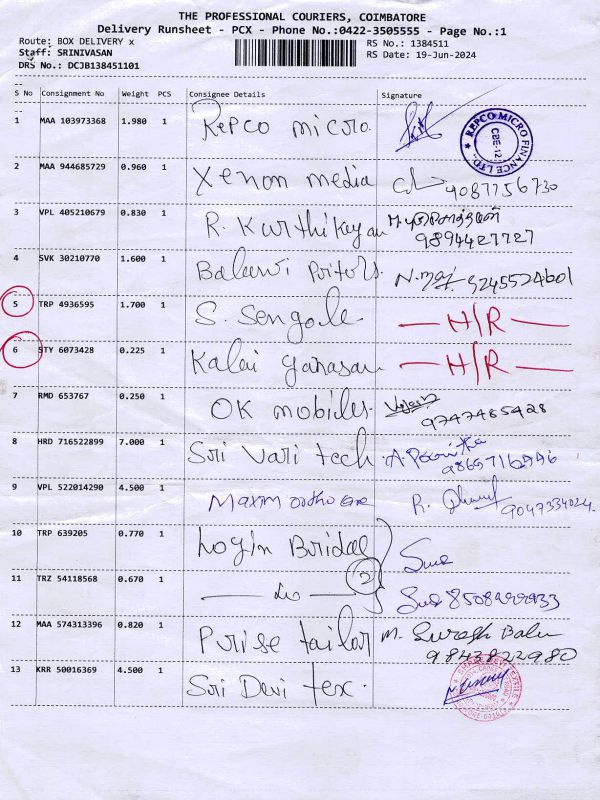 THE PROFESSIONAL COURIERS, COIMBATORE
Delivery Runsheet - PCX - Phone No.:0422-3505555 - Page No.:1
Route: BOX DELIVERY x
Staff: SRINIVASAN
DRS No.: DCJB138451101
RS No.: 1384511
RS Date: 19-Jun-2024
S No Consignment No Weight PCS Consignee Details Signature
1 MAA 103973368 1.980 1 Repco micro
REPCO MICRO FINANCE LTD.
CBE-12
2 MAA 944685729 0.960 1 Xenon media 9087756730
3 VPL 405210679 0.830 1 R. Karthikayan
9894427727
4 SVK 30210770 1.600 1 9245524601
5 TRP 4936595 1.700 1 S. Sengode — H/R —
6 STY 6073428 0.225 1 Kalai — H/R —
7 RMD 653767 0.250 1 OK mobiles
9747485428
8 HRD 716522899 7.000 1 Sri Vari tech
9 VPL 522014290 4.500 1 Maxim ortho care R. 9047334024
10 TRP 639205 0.770 1 Login Bridal
2
11 TRZ 54118568 0.670 1
12 MAA 574313396 0.820 1 tailor M. Suresh Babu
9843822980
13 KRR 50016369 4.500 1 Sri Devi tex.